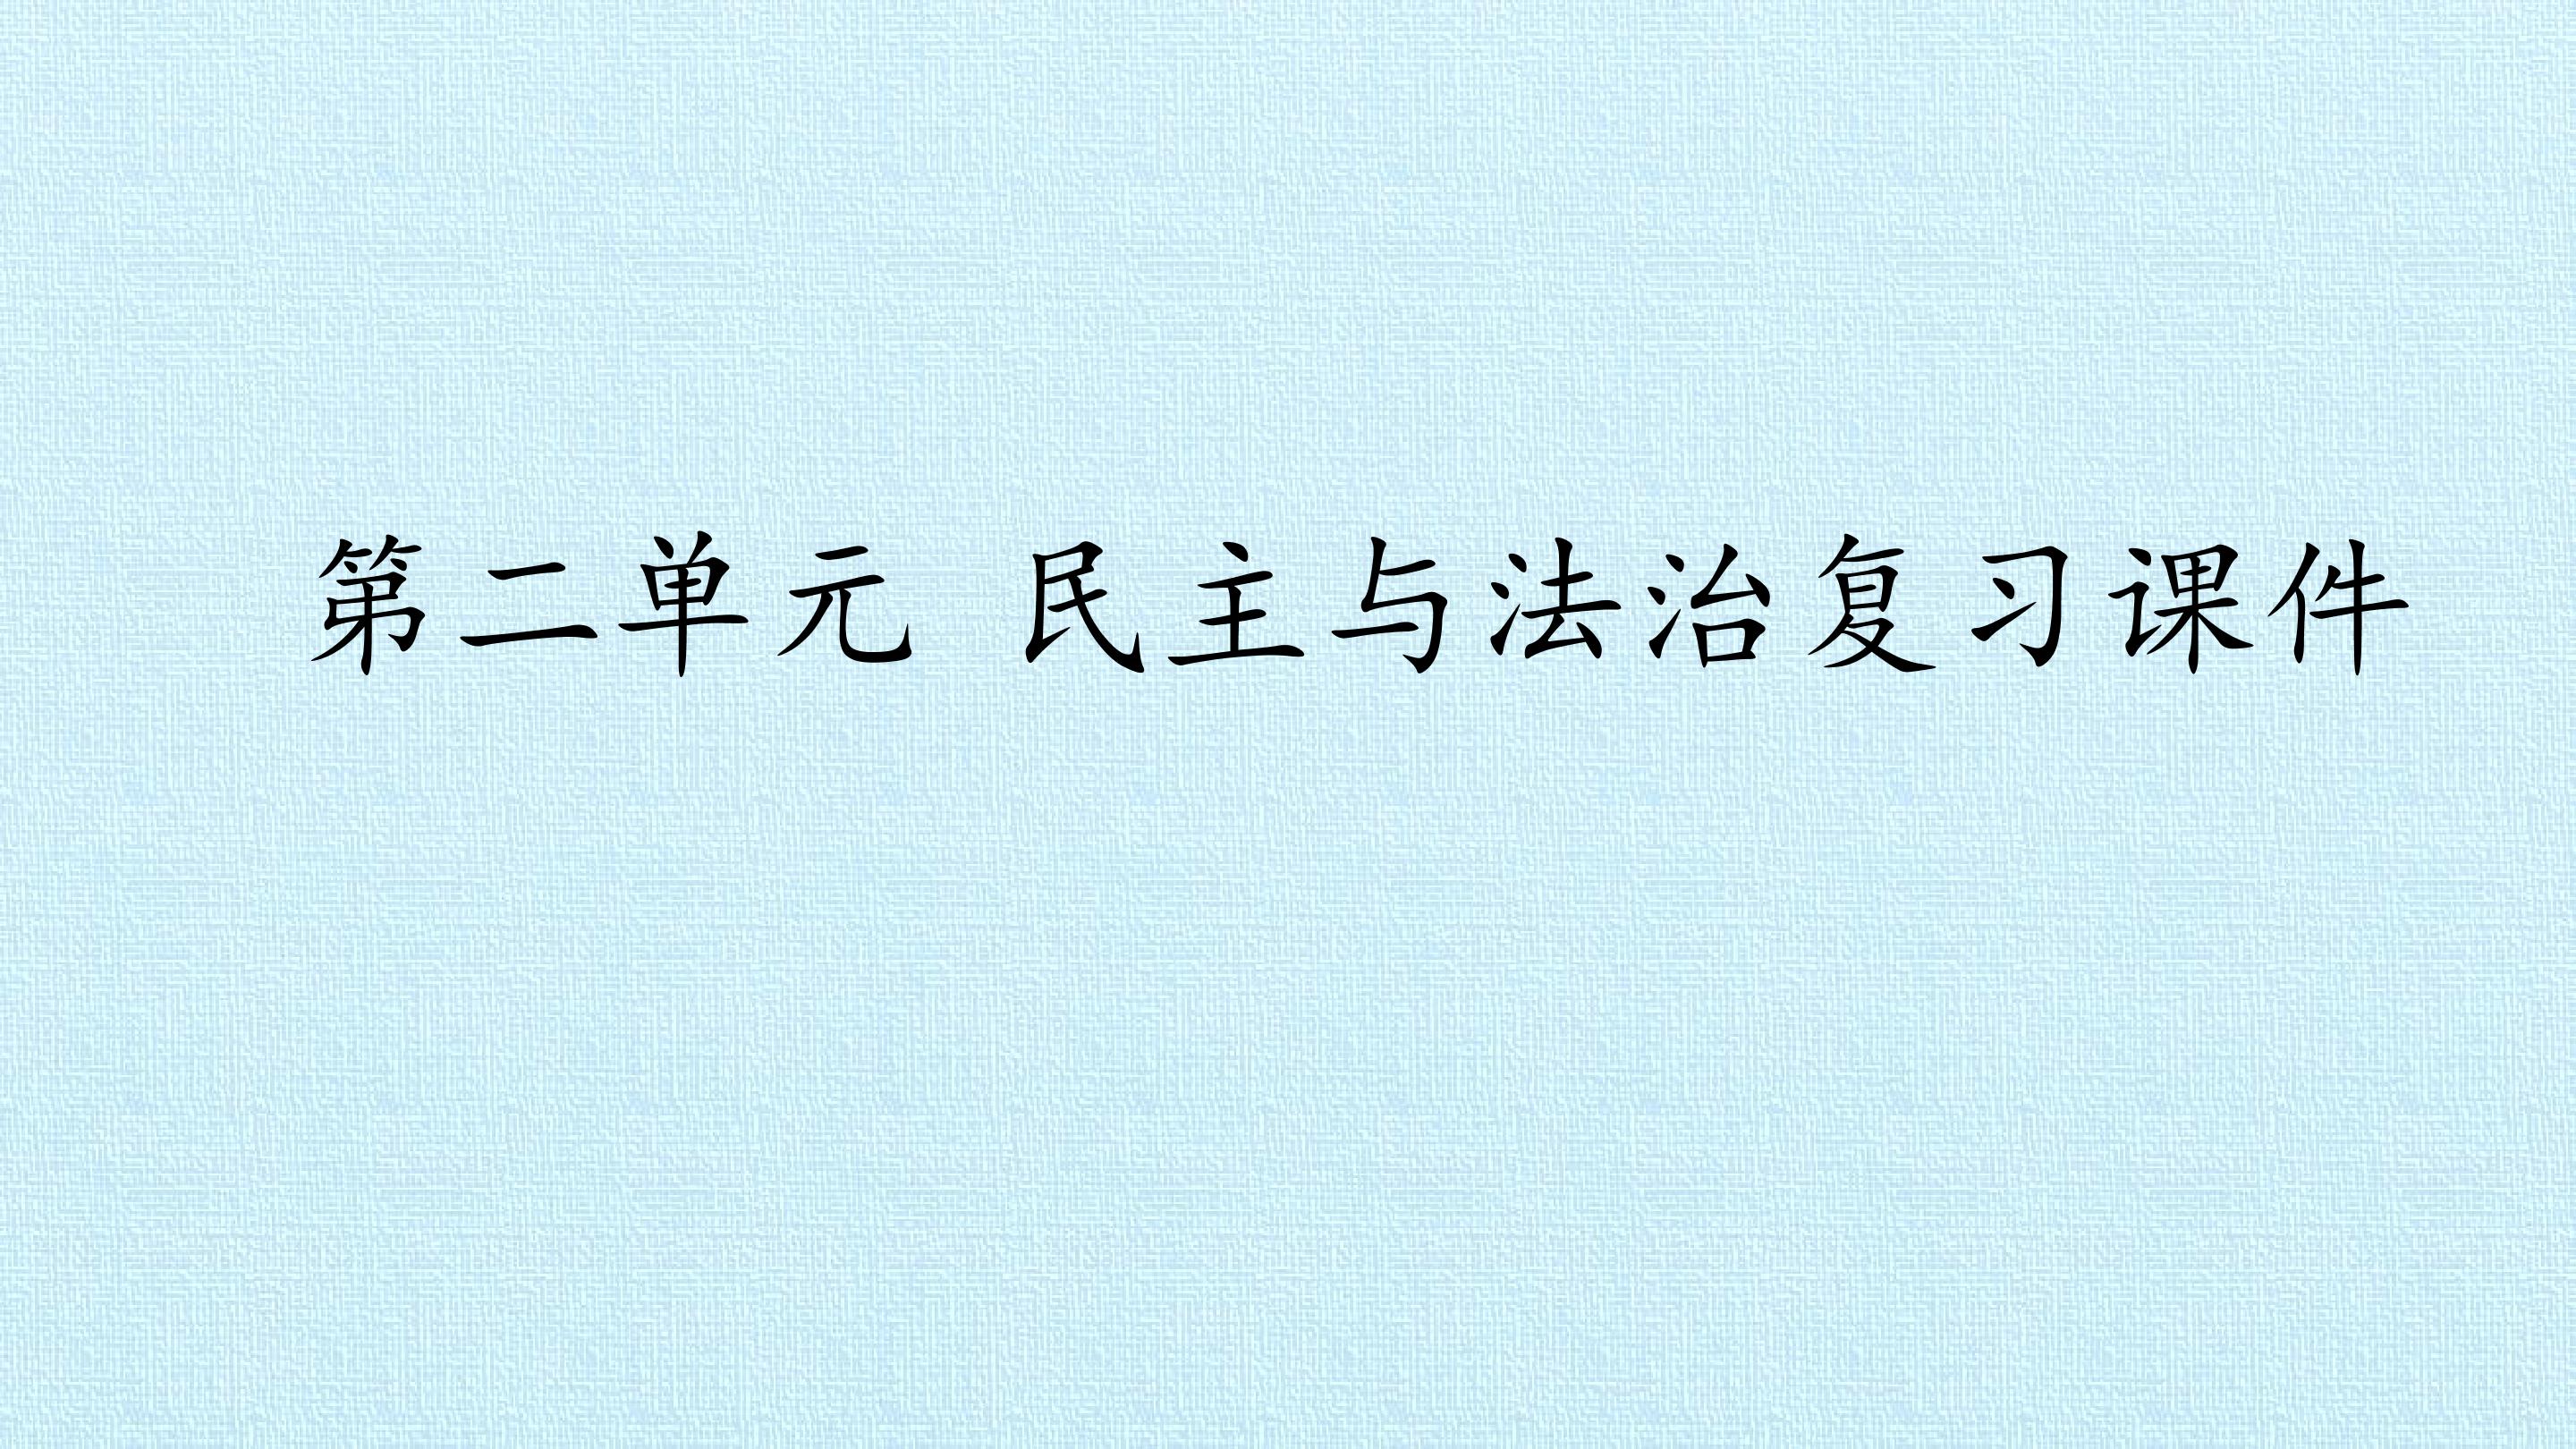 第二单元 民主与法治复习课件